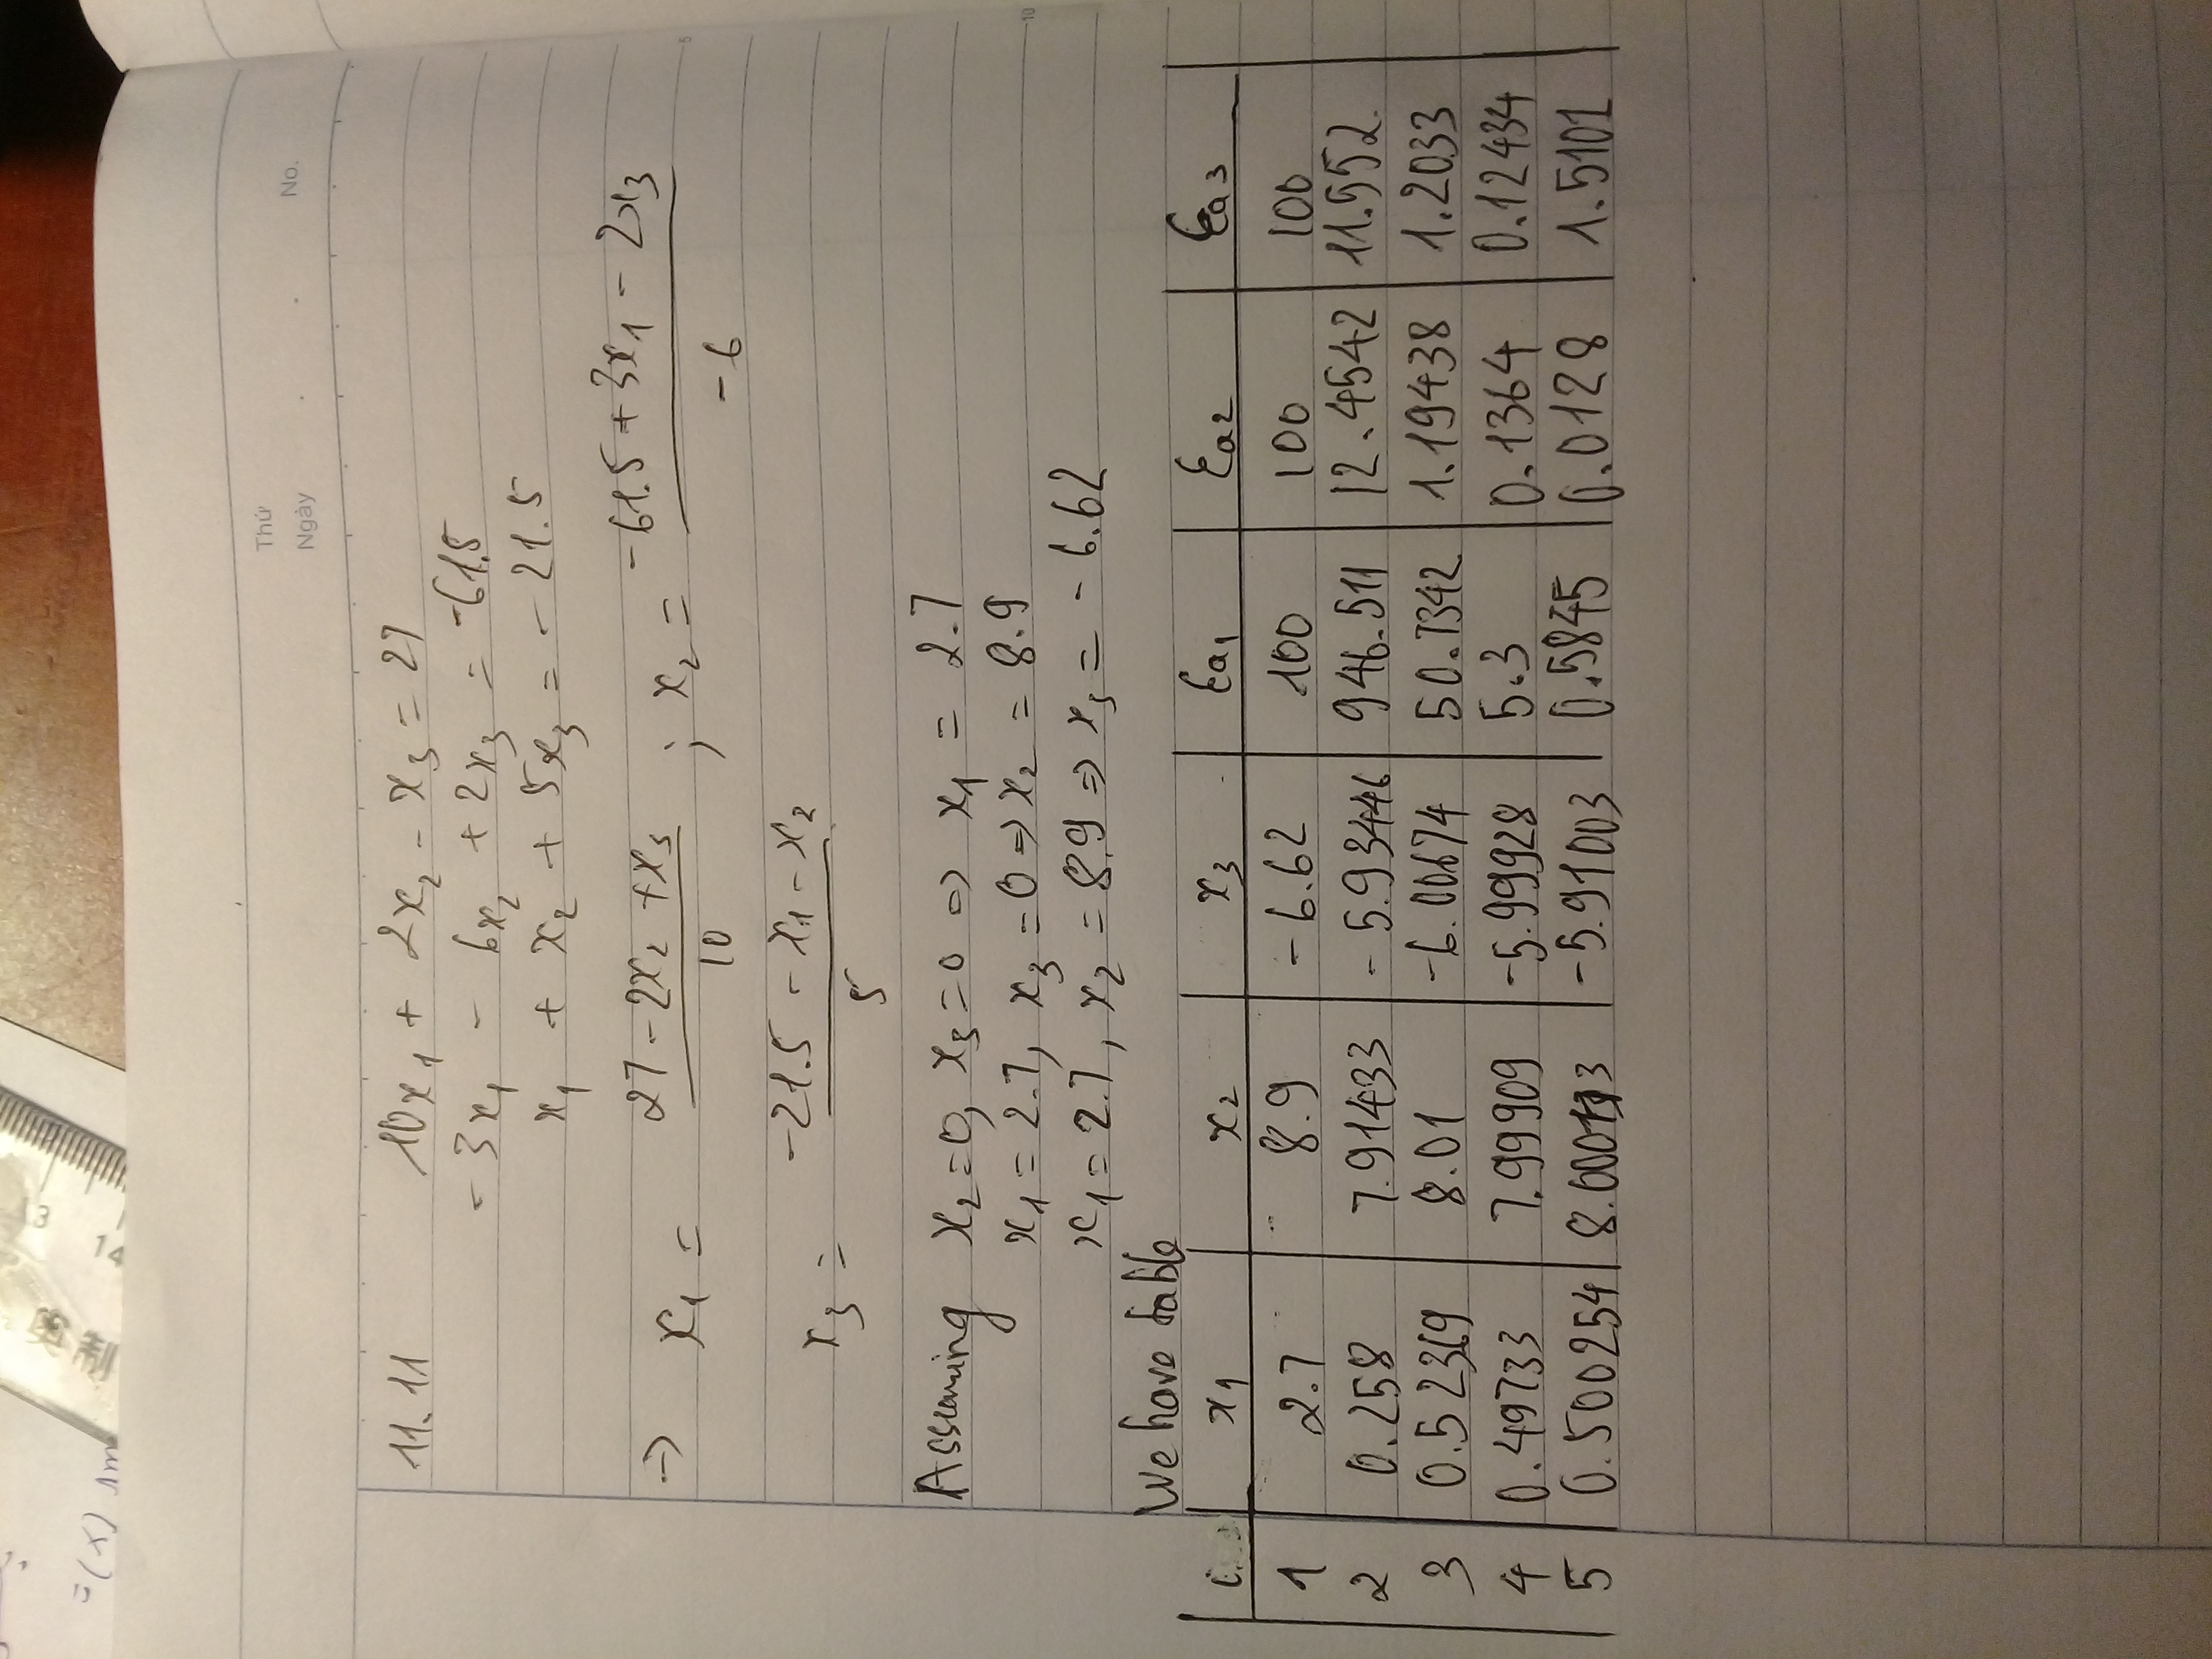 =(x) 1m
13
14
Thứ
Ngày
No.
11.11 10x₁ + 2x₂ - x₃ = 27
- 3x₁ - 6x₂ + 2x₃ = -61.5
x₁ + x₂ + 5x₃ = - 21.5
→ x₁ = (27 - 2x₂ + x₃)/10 ; x₂ = (-61.5 + 3x₁ - 2x₃)/-6
5
x₃ = (-21.5 - x₁ - x₂)/5
Assuming x₂ = 0, x₃ = 0 ⇒ x₁ = 2.7
x₁ = 2.7, x₃ = 0 ⇒ x₂ = 8.9
10
x₁ = 2.7, x₂ = 8.9 ⇒ x₃ = - 6.62
We have table
i x₁ x₂ x₃ Ɛa₁ Ɛa₂ Ɛa₃
1 2.7 8.9 - 6.62 100 100 100
2 0.258 7.91433 - 5.93446 946.511 12.4542 11.552
3 0.52369 8.01 -6.00674 50.7342 1.19438 1.2033
4 0.49733 7.99909 -5.99928 5.3 0.1364 0.12434
5 0.500254 -5.91003 0.5845 0.0128 1.5101